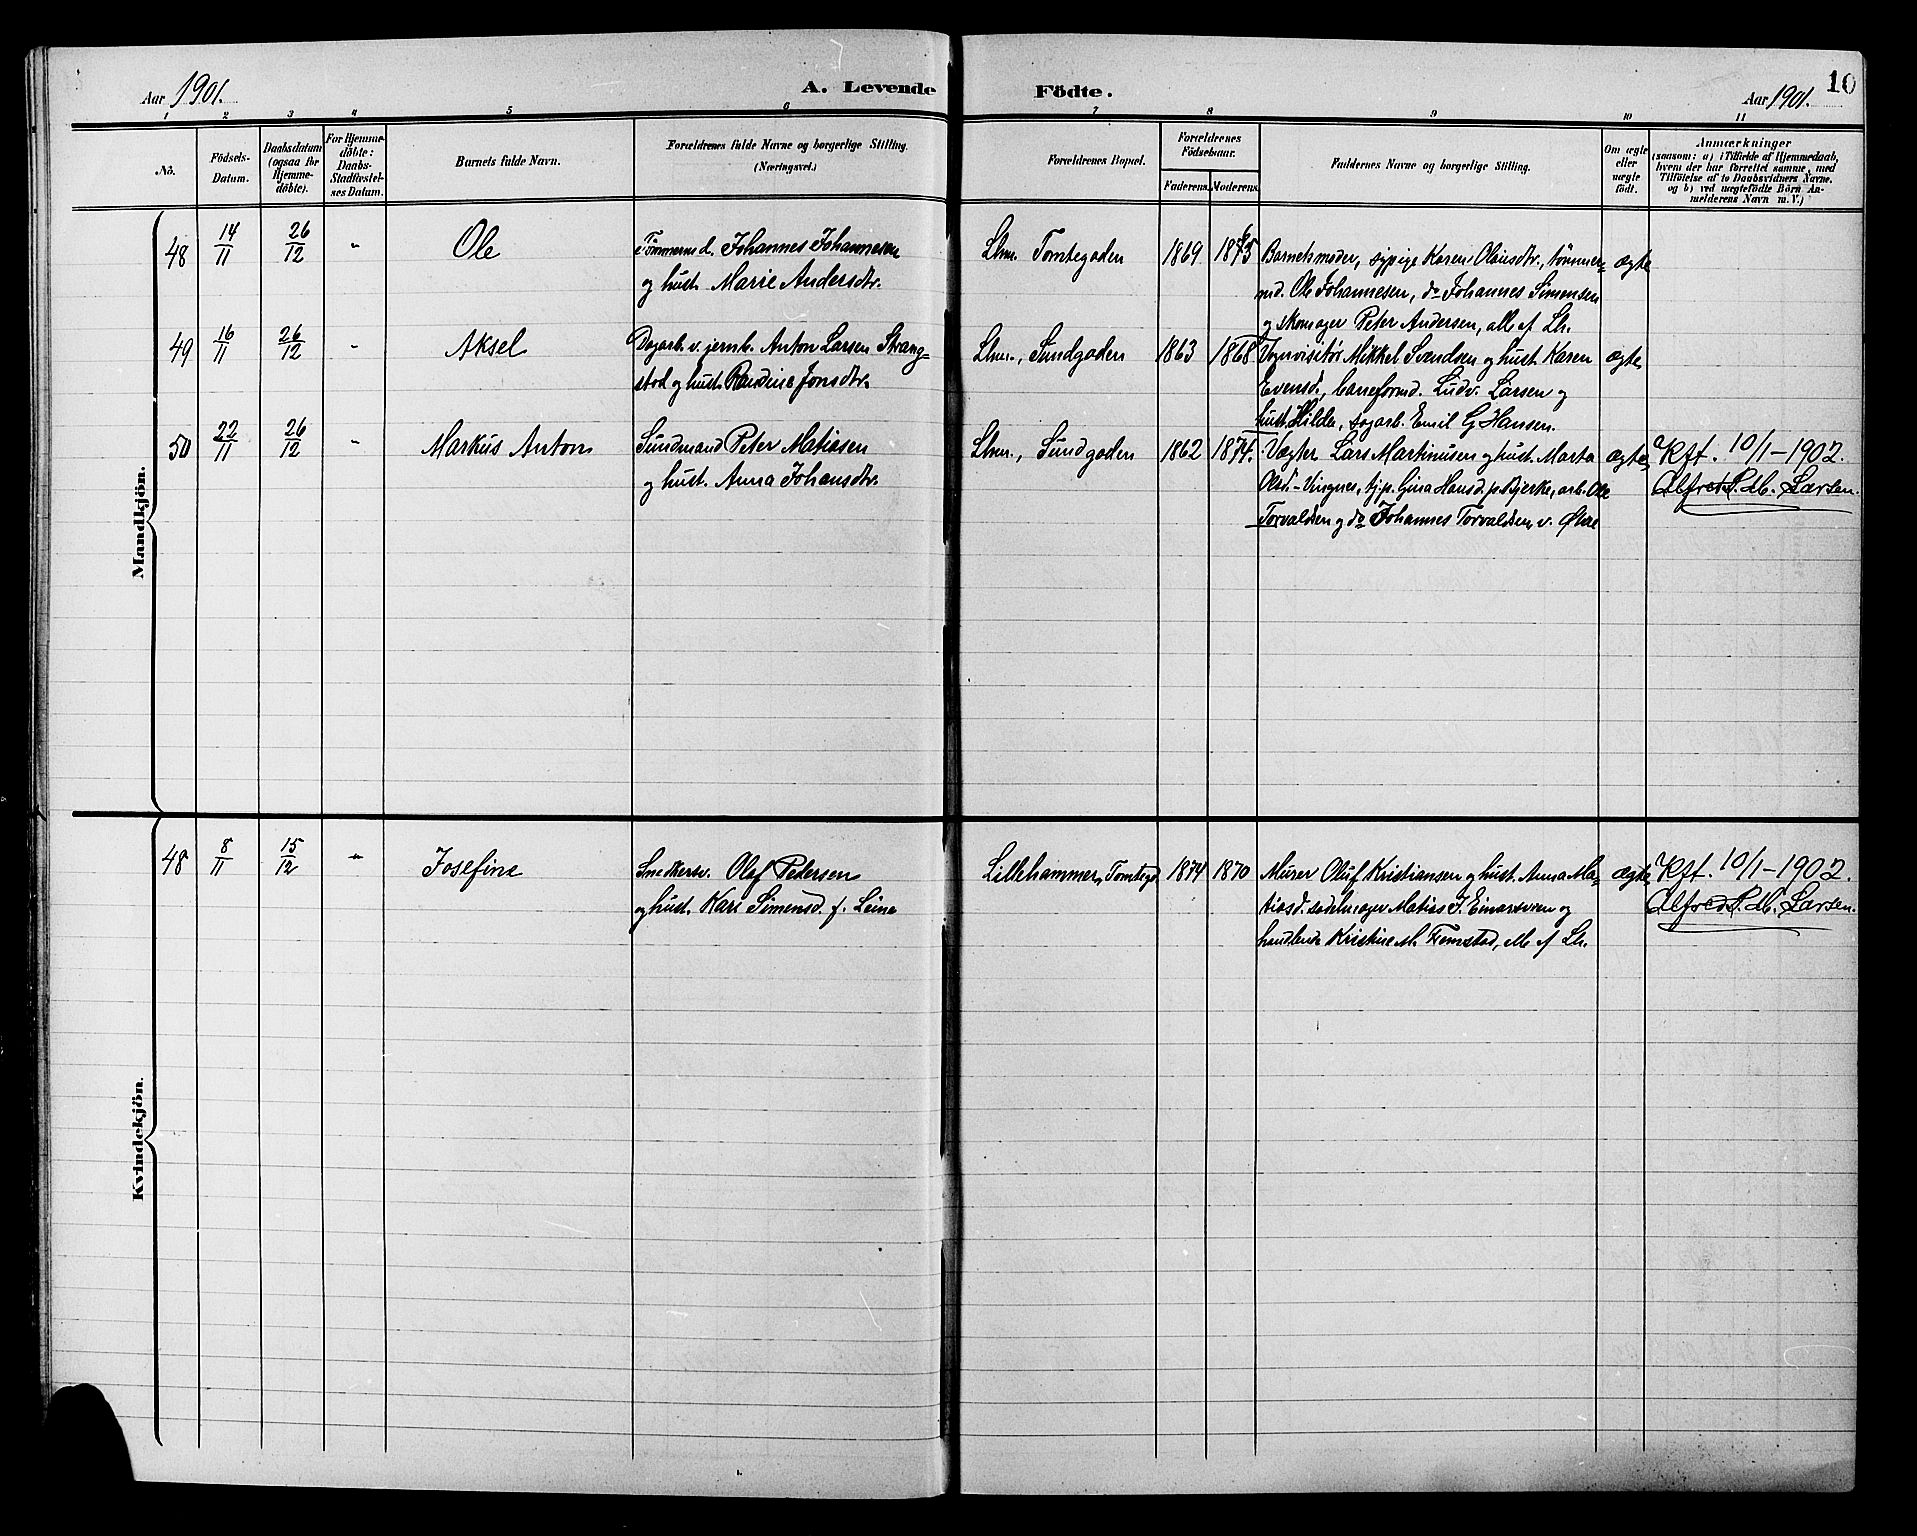 Aar 1901.
A. Levende Födte.
10
Aar 1901.
1 2 3 4 5 6 7 8 9 10 11
No.
Födsels-Datum.
Daabsdatum (ogsaa for Hjemme-döbte).
For Hjemme-döbte: Daabs-Stadfæstel-ses Datum.
Barnets fulde Navn.
Forældrenes fulde Navne og borgerlige Stilling. (Næringsvei.)
Forældrenes Bopæl.
Forældrenes Födselsaar.
Faderens. Moderens.
Faddernes Navne og borgerlige Stilling.
Om ægte eller uægte födt.
Anmærkninger
(saasom: a) i Tilfælde af Hjemmedaab,
hvem der har forrettet samme, med
Tilföielse af to Daabsvidners Navne.
og b) ved uægtefödte Börn An-
melderens Navn m. V.)
Mandkjön.
48 14/11 26/12 " Ole
Tømmermd. Johannes Johannesen
og hust. Marie Andersdtr.
Lhm. Tomtegaden 1869
Barnets moder, sypige Karen Olausdtr., tømmer-
md. Ole Johannesen, do Johannes Simensen
og skomager Peter Andersen, alle af Lh.
ægte
49 16/11 26/12 " Aksel
Dagarb. v. jernb. Anton Larsen Strang-
stad og hust. Randine Jonsdtr.
Lhm., Sundgaden 1863 1868
Vognvisitør Mikkel Svendsen og hust. Karen
Evensd., baneformd. Ludv. Larsen og
hust. Hilda, dagarb. Emil G Hansen.
ægte
50 22/11 26/12 " Markus Anton
Sundmand Peter Matiasen
og hust. Anna Johansdtr.
Lhm., Sundgaden 1862 1874.
Vægter Lars Martinusen og hust. Marta
Olsd. - Vingnes, tjp. Gina Hansd. p. Bjerke, arb. Ole
Torvaldsen og do Johannes Torvaldsen, v. Øvre
ægte
Kft. 10/1-1902.
Alfred P. M. Larsen.
Kvindekjön.
48 8/11 15/12 " Josefine
Snedkersv. Olaf Pedersen
og hust. Kari Simensd. f. Leine
Lillehammer, Tomtegd 1874 1870
Murer Oluf Kristiansen og hust. Anna Ma-
tiasd. sadelmager Matias J. Einarsveen og
handlende Kristine M. Fremstad, alle af Lh.
ægte
Kft. 10/1-1902.
Alfred P. M. Larsen.